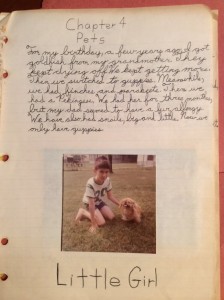 Chapter 4
Pets
For my birthday, a few years ago, I got
goldfish from my grandmother. They
kept dying off. We kept getting more.
Then we switched to guppies. Meanwhile,
we had finches, and parakeets. Then we
had a Pekingese. We had her for three months,
but my dad seemed to have a fur allergy.
We have also had snails, big and little. Now we
only have guppies.
Little Girl